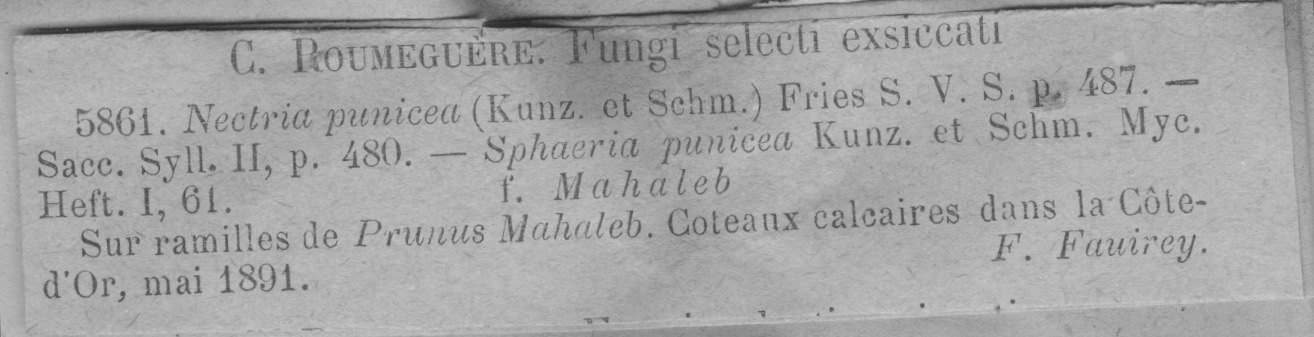 C. ROUMEGUÈRE. Fungi selecti exsiccati
5861. Nectria punicea (Kunz. et Schm.) Fries S. V. S. p. 487. —
Sacc. Syll. II, p. 480. — Sphaeria punicea Kunz. et Schm. Myc.
Heft. I, 61. f. Mahaleb
Sur ramilles de Prunus Mahaleb. Coteaux calcaires dans la Côte-
d'Or, mai 1891. F. Fauirey.